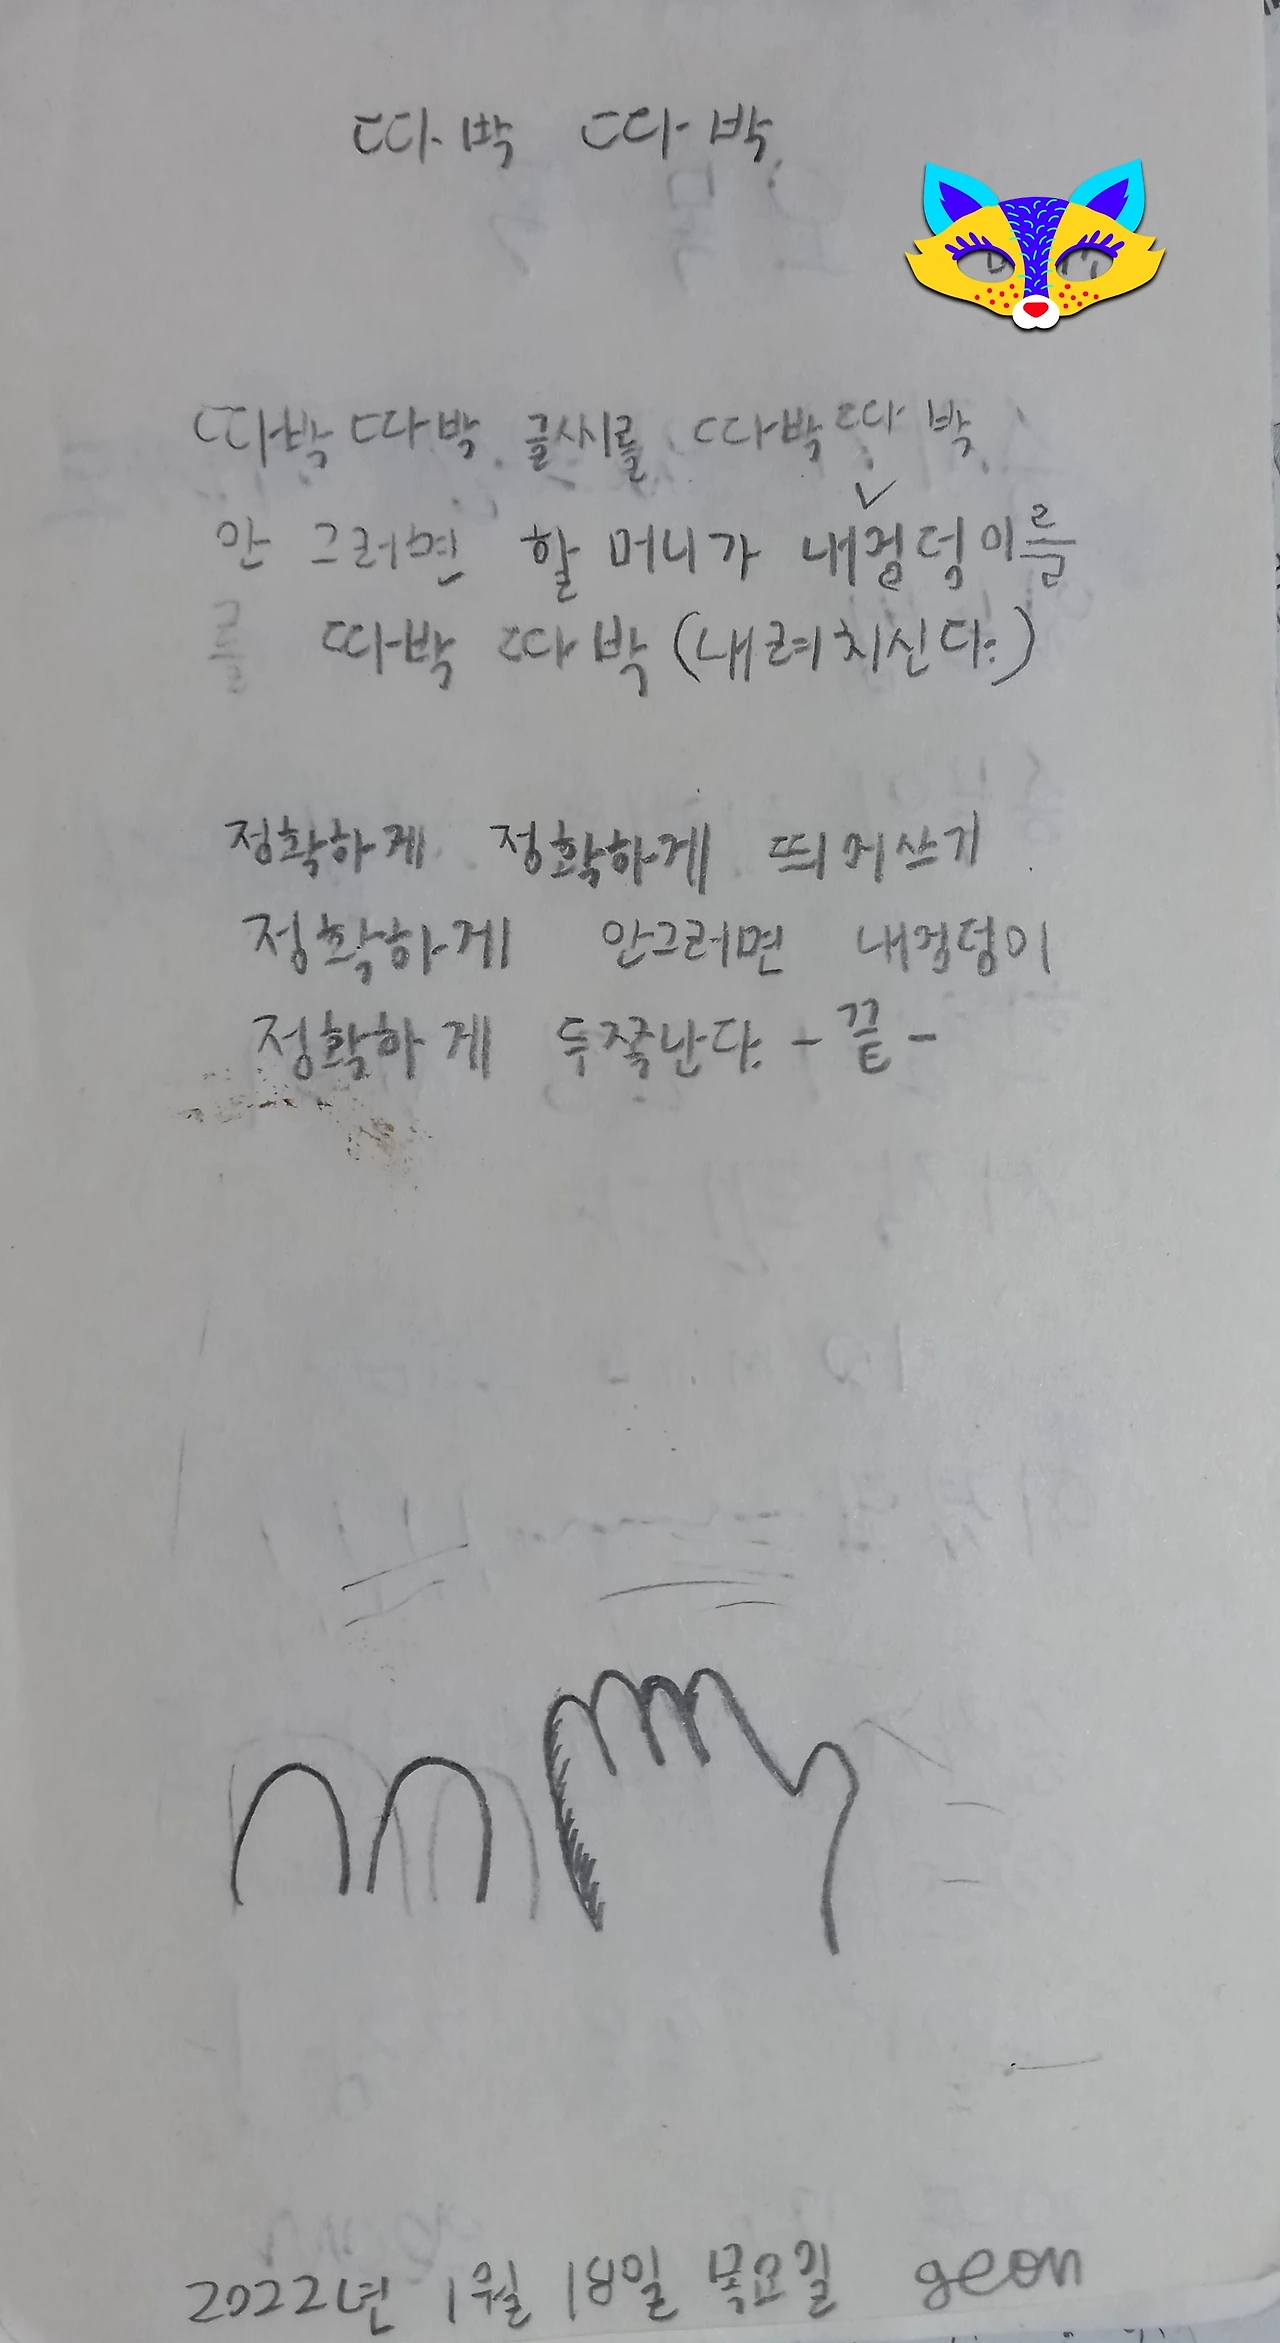 따박 따박
따박 따박 글씨를 따박 따박
안 그러면 할머니가 내 겅덩이를
따박 따박 (내려치신다.)
정확하게 정확하게 띄어쓰기
정확하게 안그러면 내겅덩이
정확하게 두쪽난다. - 끝 -
2022년 1월 18일 목요길 geon